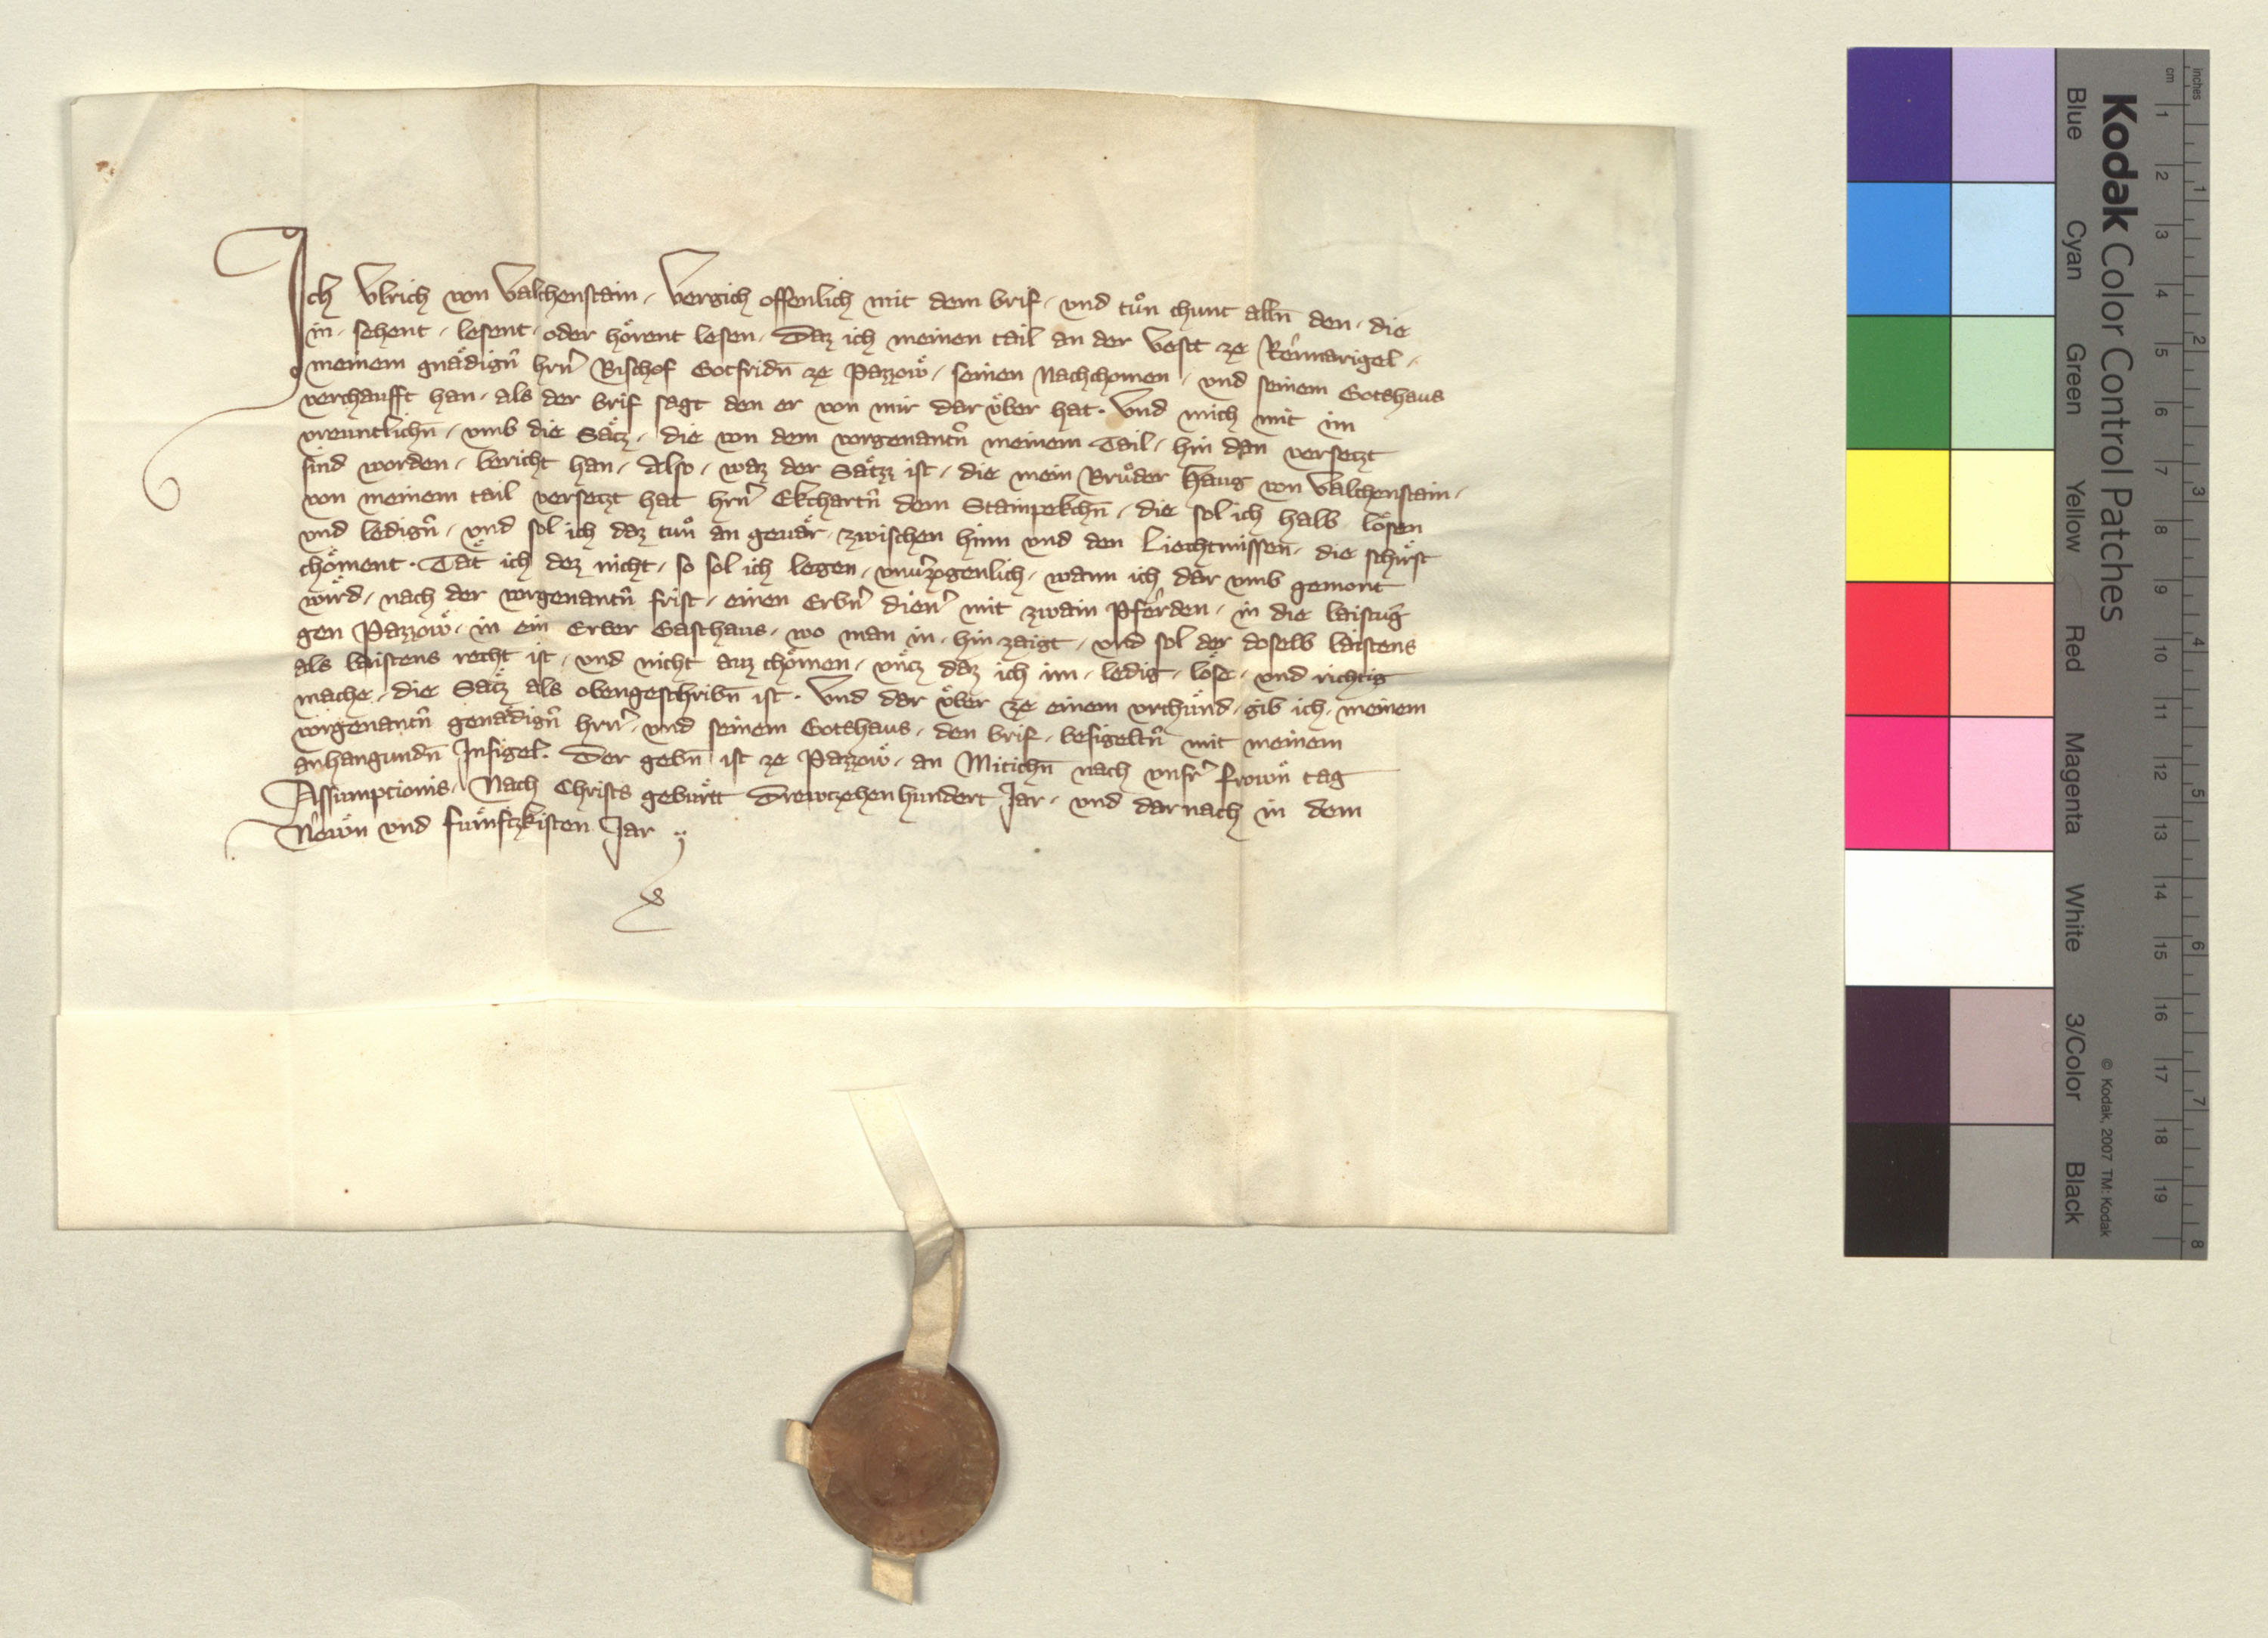 Ich Vlrich von Valchenstain, Vergich offenlich mit dem brif, vnd tůn chunt alln̄ den, die
in, sehent, lesent, oder hoͤrent lesen, Daz ich meinen tail an der Vest ze Rênnarigel,
meinem gnaͤdigñ hrñ Bischof Gotfridn̄ ze Pazzoẘ, seinen Nachchomen, vnd seinem Gotshaus
verchaufft han, als der brif sagt den er von mir dar vͤber hat. Vnd mich mit im
vreuntlichn̄, vmb die Saͤtz, die von dem vorgenantñ meinem Tail, hin dan versetzt
sind worden, bericht han, Also, waz der Saͤtzz ist, die mein Brůder Haug von Valchenstain,
von meinem tail versetzt hat hrñ Ekchartñ dem Stainpekchn̄, die sol ich halb loͤsen
vnd ledigñ, vnd sol ich daz tůn an geuaͤr, zwischen hinn vnd den Liechtmissen, die schirst
choͤment. Taͤt ich dez nicht, so sol ich legen, vnuerzogenlich, wann ich dar vmb gemont
wuͤrd, nach der vorgenantñ frist, einen Erbñ dien̄ mit zwain Pferden, in die laistug̃
gen Pazzoẘ, in ein Erber Gasthaus, wo man in, hin zaigt, vnd sol der doselb laistens
als laistens recht ist, vnd nicht auz choͤmen, vncz daz ich im, ledig, loͤse, vnd richtig
mache, die Saͤtz als obengeschribn̄ ist. Vnd dar vͤber ze einem vrchuͤnd, gib ich, meinem
vorgenantñ genaͤdigñ hrñ, vnd seinem Gotshaus, den brif, besigeltñ mit meinem
anhangundn̄ Insigel. Der gebn̄ ist ze Pazzoẘ, an Mitichn̄ nach vnsr̃ froẘn tag
Assumpcionis, Nach Christs gebuͤrtt Drewczehenhundert Jar, vnd darnach in dem
Neẘn vnd fuͤnftzkisten Jar
Kodak Color Control Patches
Blue Cyan Green Yellow Red Magenta White 3/Color Black
© Kodak, 2007 TM: Kodak
inches 1 2 3 4 5 6 7 8
cm 1 2 3 4 5 6 7 8 9 10 11 12 13 14 15 16 17 18 19